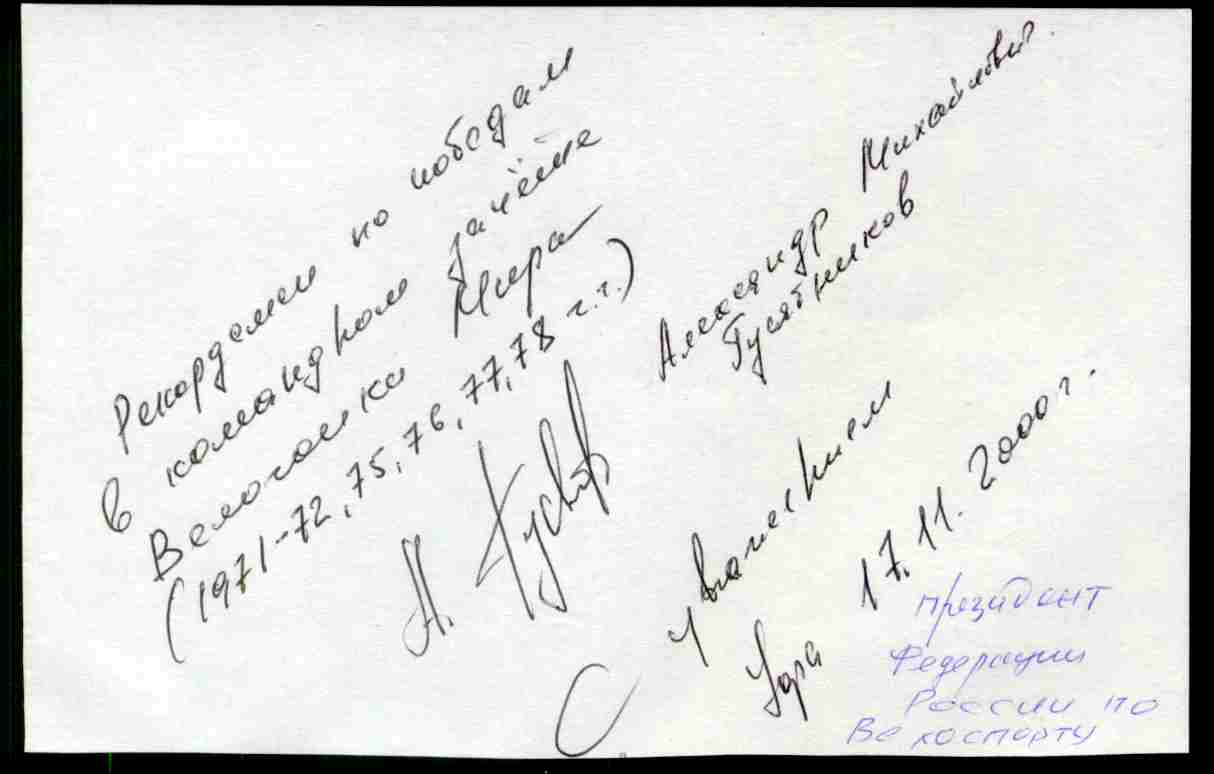 Рекордсмен по победам
в командном зачёте
Велогонки Мира
(1971-72, 75, 76, 77, 78 г.г.)
А. Гусят
Александр Михайлович
Гусятников
С уважением
17.11. 2000 г.
президент
Федерации
России по
Велоспорту